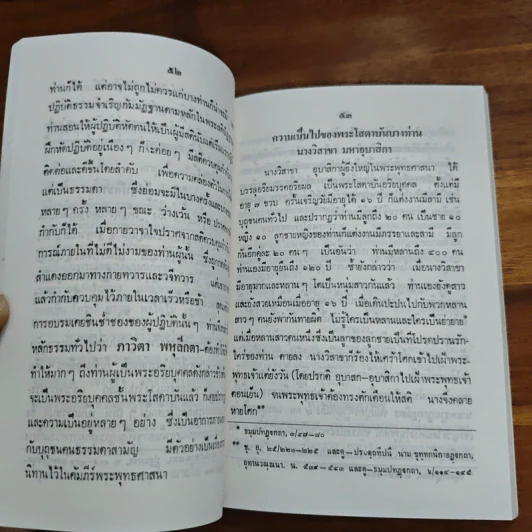 ๕๒
ท่านก็ได้ แต่อาจไม่ถูกไม่ควรแก่บางท่านก็น่าจะมี
ปฏิบัติธรรมจำเริญกัมมัฏฐานตามหลักในพระ
ท่านสอนให้ผู้ปฏิบัติหัดตนให้เป็นผู้มีสติ
ฝึกหัดปฏิบัติอยู่เนืองๆ ก็จะค่อยๆ มีสติควบคุม
ติดต่อและดีขึ้นโดยลำดับ เพื่อความคล่องตัว
แต่เป็นธรรมดา ซึ่งย่อมจะมีในบางครั้ง
หลายๆ ครั้ง หลายๆ ขณะ ว่างเว้น หรือ
กำกับก็ได้ เมื่อกายวาจาใจปราศจากสติควบคุม
การณ์ภายในที่ไม่ดีไม่งามของท่านผู้นั้น ซึ่งถูก
สำแดงออกมาทางกายทวารและวจีทวาร แต่
แล้วกำกับควบคุมไว้ภายในเวลาเร็วหรือช้า
การอบรมเคยชินช่ำชองของผู้ปฏิบัตินั้นๆ ท่าน
หลักธรรมทั่วไปว่า ภาวิตา พหุลีกตา-ต้องทำให้
ทำให้มากๆ ถึงท่านผู้เป็นพระอริยบุคคลดังกล่าว
จะเป็นพระอริยบุคคลชั้นพระโสดาบันแล้ว ก็
และความเป็นอยู่หลายๆ อย่าง ซึ่งเป็นอาการภาย
กับบุถุชนคนธรรมดาสามัญ มีตัวอย่างเป็น
นิทานไว้ในคัมภีร์พระพุทธศาสนา
๕๓
ความเป็นไปของพระโสดาบันบางท่าน
นางวิสาขา มหาอุบาสิกา
นางวิสาขา อุบาสิกาผู้ยิ่งใหญ่ในพระพุทธศาสนา ได้
บรรลุอริยมรรคอริยผล เป็นพระโสดาบันอริยบุคคล ตั้งแต่มี
อายุ ๗ ขวบ ครั้นเจริญวัยมีอายุได้ ๑๖ ปี ก็แต่งงานมีสามี เช่น
บุถุชนคนทั่วไป และปรากฏว่าท่านมีลูกถึง ๒๐ คน เป็นชาย ๑๐
หญิง ๑๐ ลูกชายหญิงของท่านก็แต่งงานมีภรรยาและสามี มีลูก
กันอีกคนละ ๒๐ คน เป็นอันว่า ท่านมีหลานถึง ๔๐๐ คน
ท่านเองมีอายุยืนถึง ๑๒๐ ปี ซ้ำยังกล่าวว่า เมื่อนางวิสาขา
มีอายุมากและหลานๆ โตเป็นหนุ่มสาวกันแล้ว ท่านเองยังดูสาว
และยังสวยเหมือนเมื่ออายุ ๑๖ ปี เมื่อเดินปะปนไปกับพวกหลาน
สาวๆ คนยังพากันทายผิด ไม่รู้ใครเป็นหลานและใครเป็นย่ายาย*
แต่เมื่อหลานสาวคนหนึ่งซึ่งเป็นลูกของลูกชายเป็นที่โปรดปรานรัก
ใคร่ของท่าน ตายลง นางวิสาขาก็ร้องไห้เศร้าโศกเข้าไปเฝ้าพระ-
พุทธเจ้าแต่ยังวัน (โดยปรกติ อุบาสก-อุบาสิกาไปเฝ้าพระพุทธเจ้า
ตอนเย็น) จนพระพุทธเจ้าต้องทรงตักเตือนให้สติ นางจึงคลาย
หายโศก**
* ธมฺมปทฏฺกถา, ๓/๗๙-๘๐
** ขุ. อุ. ๒๕/๒๒๓-๒๒๕ และดู-ปรมตฺถทีปนี นาม ขุทฺทกนิกายฏฺกถา,
อุทานวณฺณนา. น. ๕๓๙-๕๔๓ และดู-ธมฺมปทฏฺกถา, ๖/๑๔๔-๑๔๕